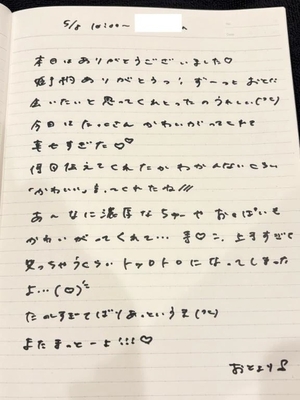 5/8 10:00～
本日はありがとうございました♡
ありがとうっ! ずーっとおとに
会いたいと思ってくれとったのうれしい(°з°)
今日はたっくさんかわいがってくれて
幸せすぎた♡♡
何回伝えてくれたかわかんないくらい
「かわいい」言ってくれたね///
あ〜なに濃厚なちゅーやおっぱいも
かわいがってくれて… 手♡こ、上手すぎて
笑っちゃうくらいトットロトロになってしまった
よ…(♡)
たのしすぎてばりあっというま(°з°)
またまっとーよ!!!♡
おとより